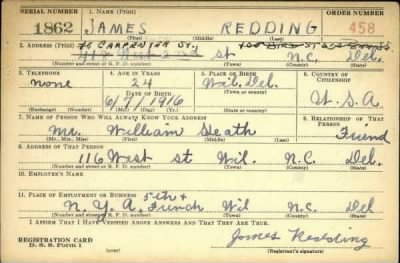 SERIAL NUMBER 1. NAME (Print) ORDER NUMBER
1862 JAMES REDDING 458
(First) (Middle) (Last)
2. ADDRESS (Print) CARPENTER ST.
2nd st N.C. Del.
(Number and street or R. F. D. number) (Town) (County) (State)
3. TELEPHONE 4. AGE IN YEARS 5. PLACE OF BIRTH 6. COUNTRY OF CITIZENSHIP
none 24 Wil. Del.
DATE OF BIRTH (Town or county)
6/7/1916 U.S.A
(Exchange) (Number) (Mo.) (Day) (Yr.) (State or country)
7. NAME OF PERSON WHO WILL ALWAYS KNOW YOUR ADDRESS 8. RELATIONSHIP OF THAT PERSON
Mr. William Heath Friend
(Mr., Mrs., Miss) (First) (Middle) (Last)
9. ADDRESS OF THAT PERSON
116 West st Wil. N.C. Del.
(Number and street or R. F. D. number) (Town) (County) (State)
10. EMPLOYER'S NAME
11. PLACE OF EMPLOYMENT OR BUSINESS 5th &
N.Y.A. French Wil N.C. Del
(Number and street or R. F. D. number) (Town) (County) (State)
I AFFIRM THAT I HAVE VERIFIED ABOVE ANSWERS AND THAT THEY ARE TRUE.
REGISTRATION CARD James Redding
D. S. S. Form 1 (over) (Registrant's signature)